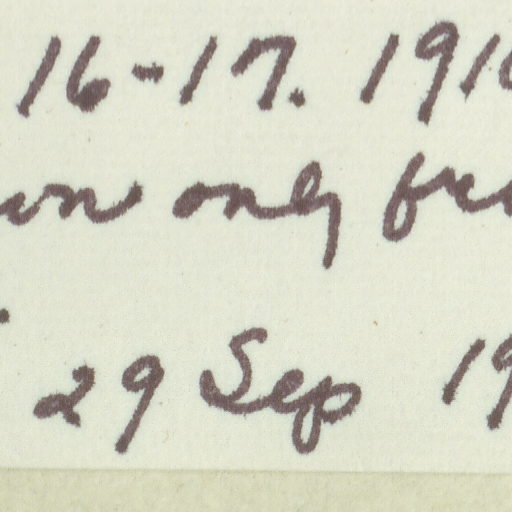 16-17. 191
only
29 Sep 19